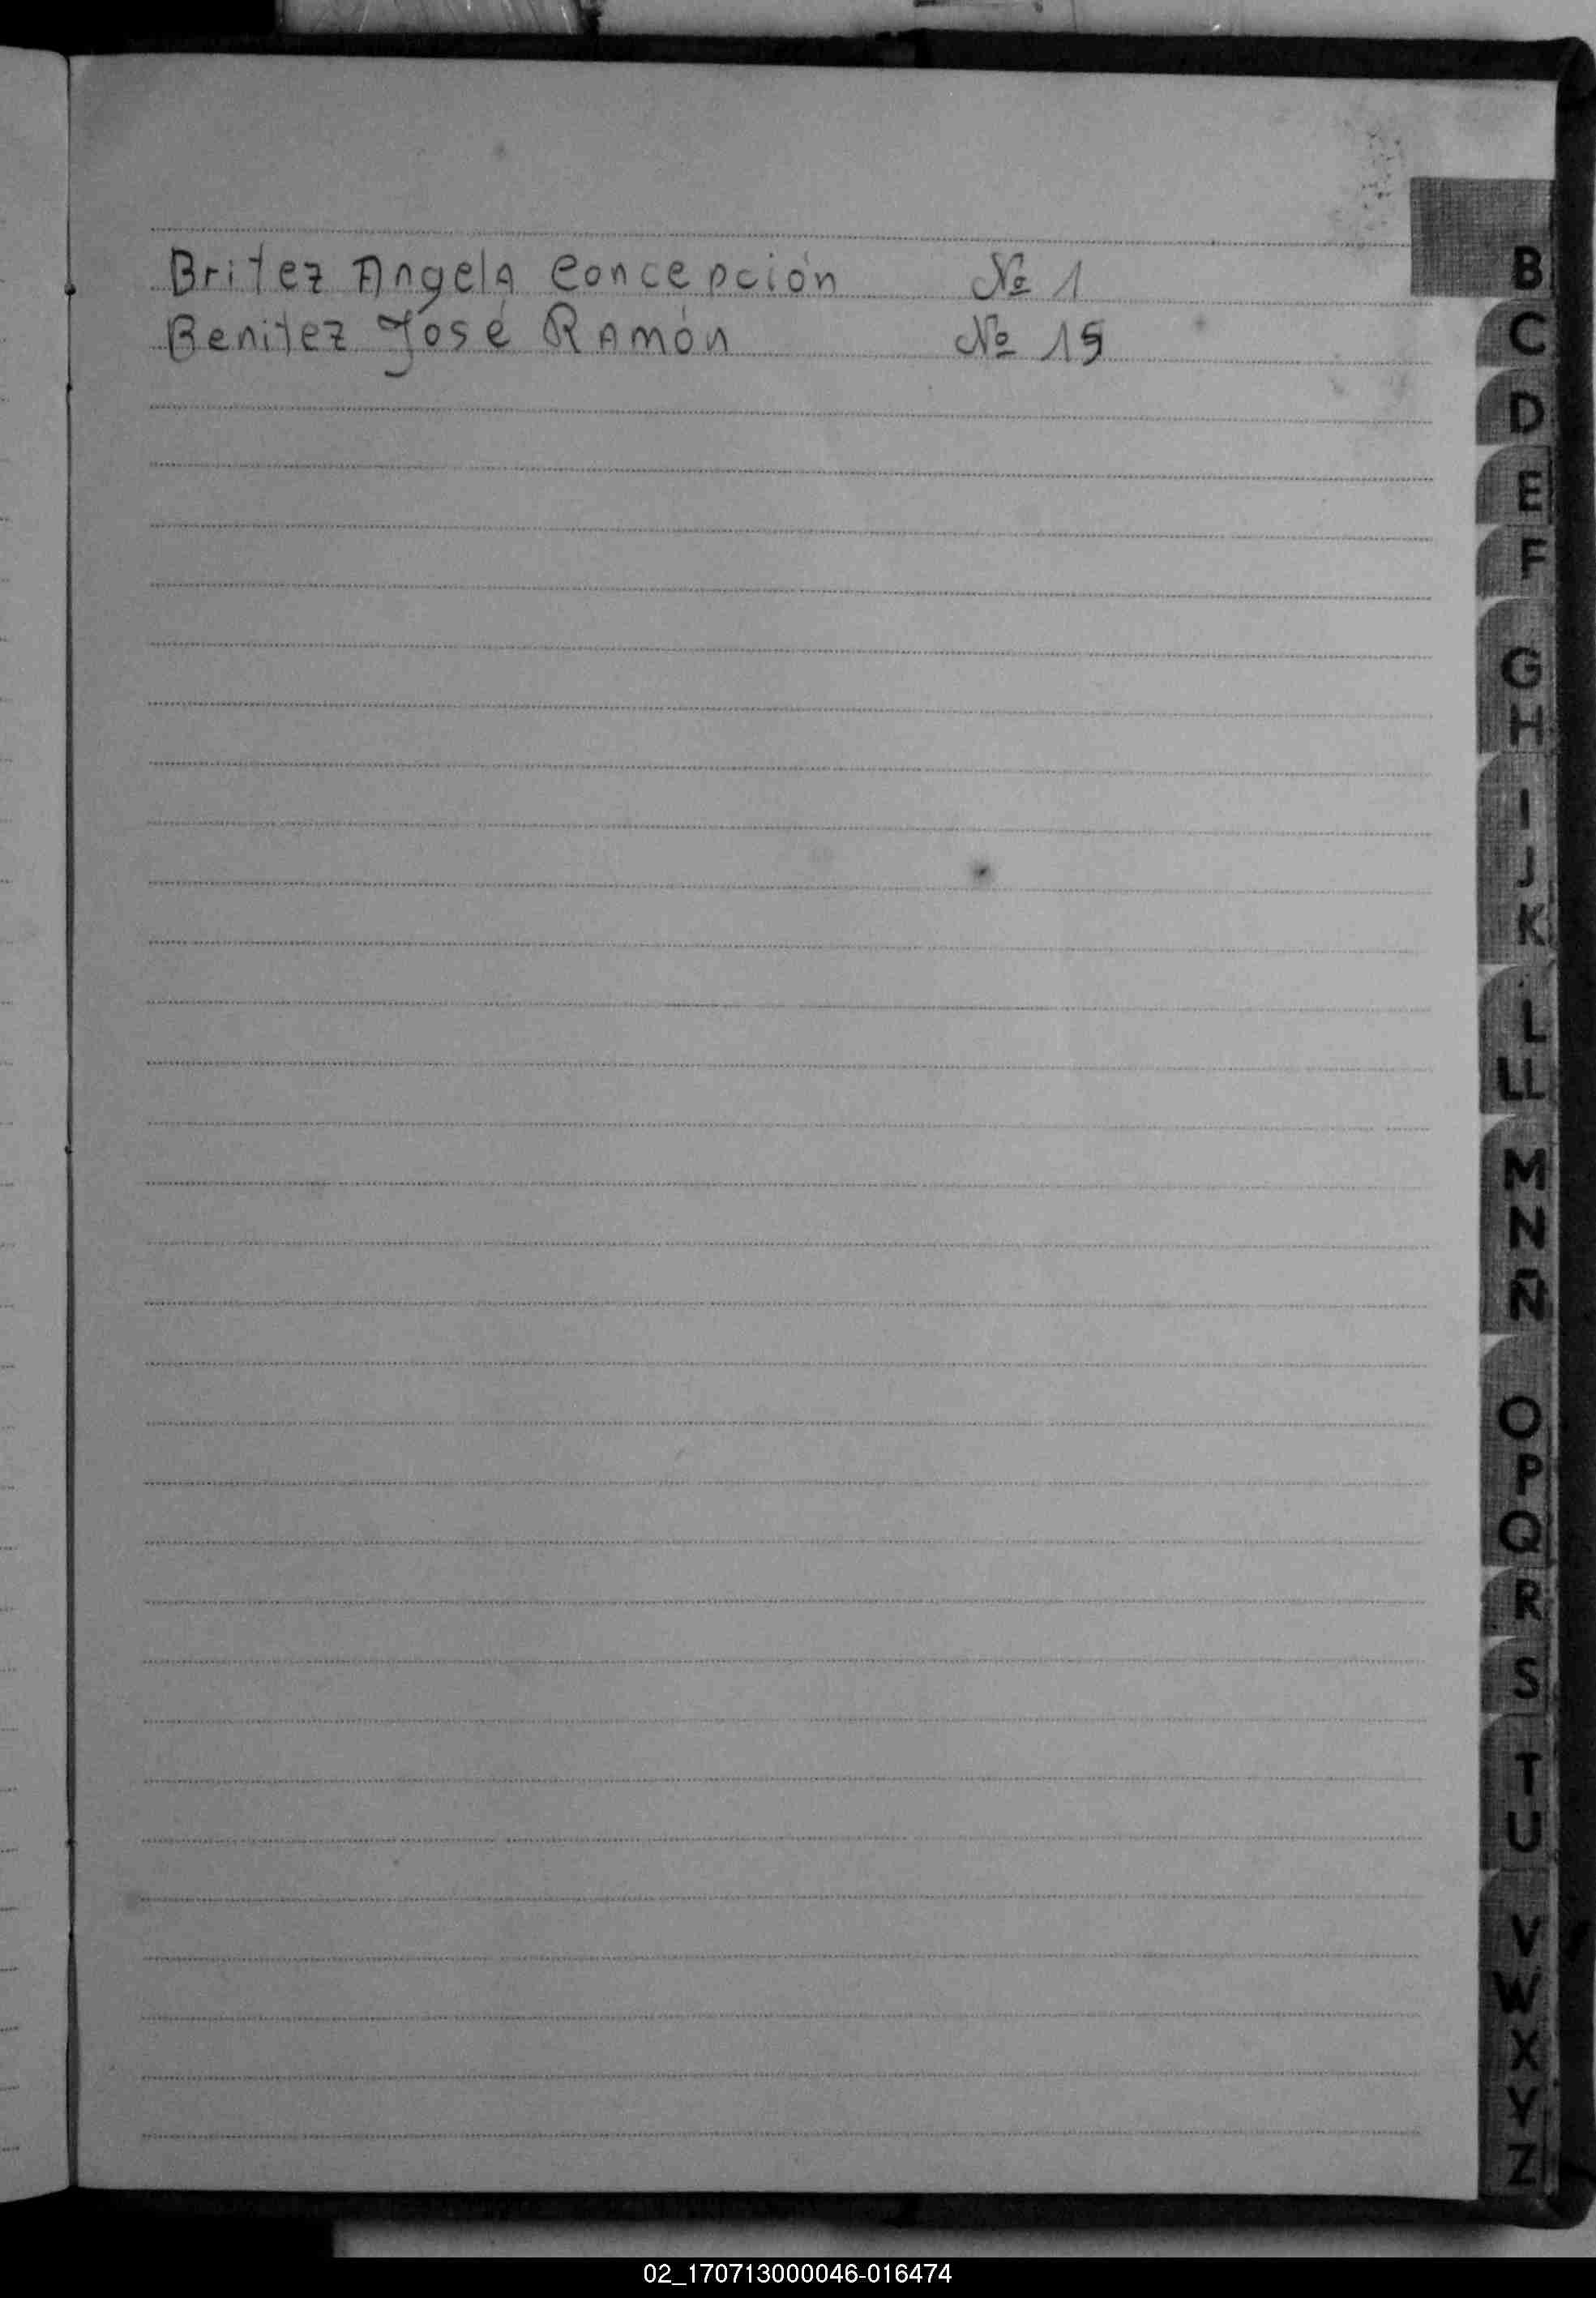 Britez Angela Concepción Nº 1
Benitez José Ramón Nº 15
B
C
D
E
F
G
H
I
J
K
L
LL
M
N
Ñ
O
P
Q
R
S
T
U
V
W
X
Y
Z
02_170713000046-016474